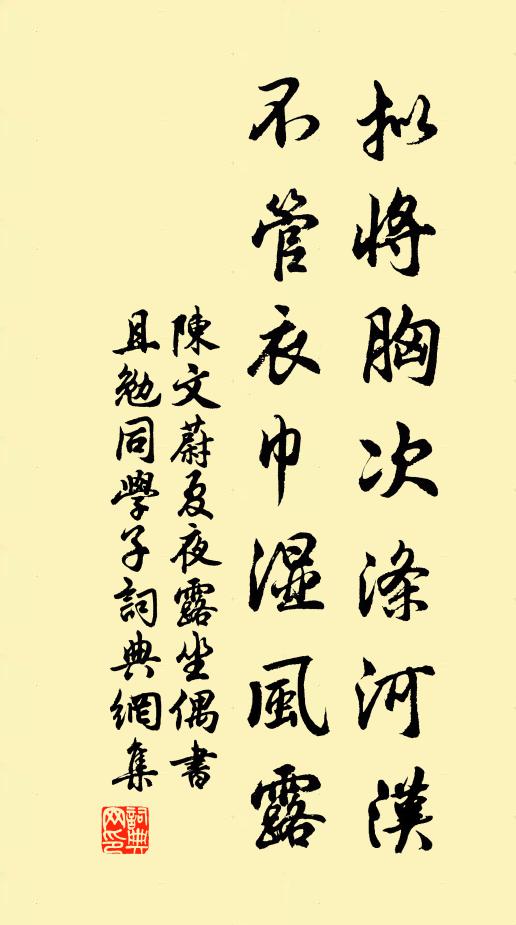 拟将胸次涤河漢
不管衣巾湿風露
陳文蔚夏夜露坐偶書
且勉同學子詞典網集
詞典網印